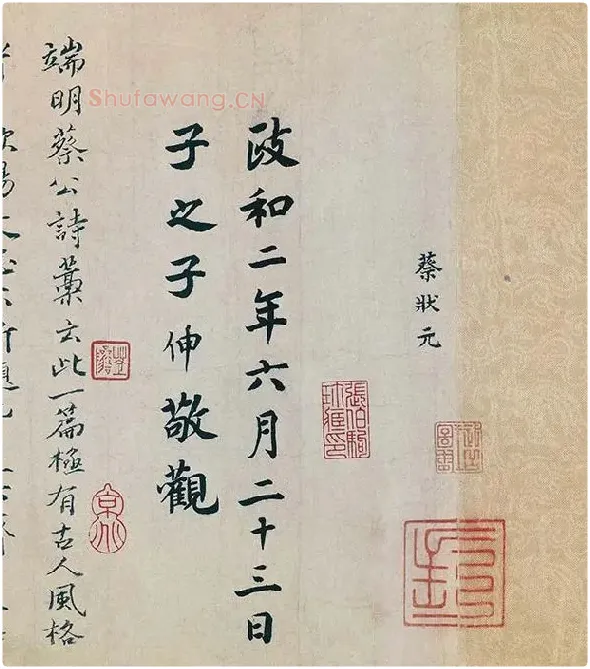 蔡狀元
政和二年六月二十三日
子之子伸敬觀
端明蔡公詩藁云此一篇極有古人風格
張伯駒珍藏印
Shufawang.CN